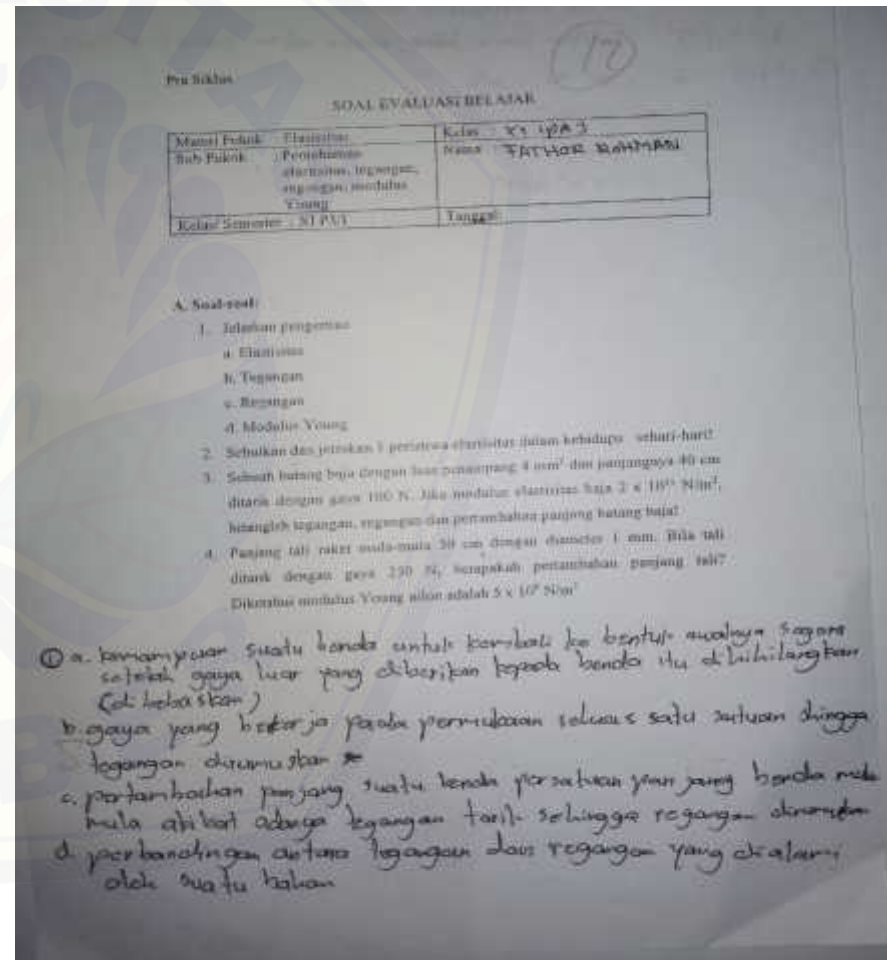 17
Pra Siklus
SOAL EVALUASI BELAJAR
Materi Pokok : Elastisitas
Kelas : XI IPA 3
Sub Pokok : Pemahaman
Nama : FATHOR ROHMAN
elastisitas, tegangan,
regangan, modulus
Young
Kelas/ Semester : XI
Tanggal:
A. Soal-soal:
1. Jelaskan pengertian
a. Elastisitas
b. Tegangan
c. Regangan
d. Modulus Young
2. Sebutkan dan jelaskan peristiwa elastisitas dalam kehidupa sehari-hari!
3. Sebuah batang baja dengan luas penampang 4 mm² dan panjangnya 40 cm
ditarik dengan gaya 100 N. Jika modulus elastisitas baja 2 x 10¹¹ N/m²,
hitunglah tegangan, regangan dan pertambahan panjang batang baja!
4. Panjang tali raket mula-mula 30 cm dengan diameter 1 mm. Bila tali
ditarik dengan gaya 250 N, berapakah pertambahan panjang tali?
Diketahui modulus Young nilon adalah 5 x 10⁹ N/m²
① a. kemampuan suatu benda untuk kembali ke bentuk awalnya segera
setelah gaya luar yang diberikan kepada benda itu dihilangkan
(di bebaskan)
b. gaya yang bekerja pada permukaan seluas satu satuan shingga
tegangan dirumuskan
c. pertambahan panjang suatu benda persatuan panjang benda mula
mula akibat adanya tegangan tarik sehingga regangan
d. perbandingan antara tegangan dan regangan yang dialami
oleh suatu bahan